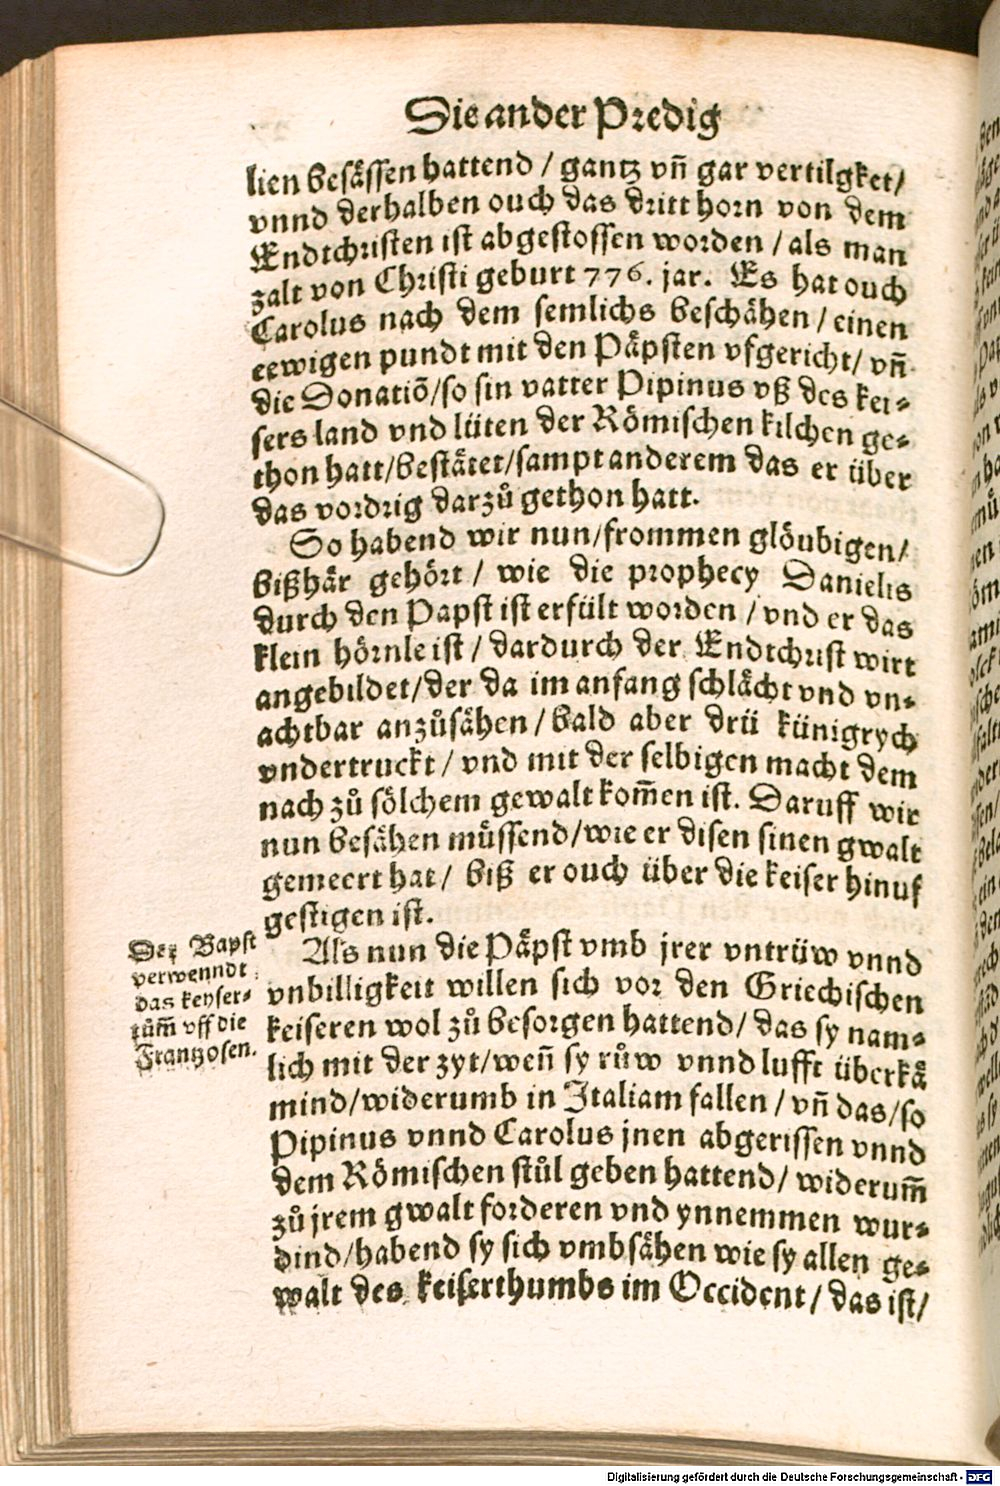 Die ander Predig
lien besässen hattend / gantz vñ gar vertilgket /
vnnd derhalben ouch das dritt horn von dem
Endtchristen ist abgestossen worden / als man
zalt von Christi geburt 776. jar. Es hat ouch
Carolus nach dem semlichs beschähen / einen
eewigen pundt mit den Päpsten vfgericht / vñ
die Donatiō / so sin vatter Pipinus vß des kei⸗
sers land vnd lüten der Römischen kilchen ge⸗
thon hatt / bestätet / sampt anderem das er über
das vordrig darzů gethon hatt.
So habend wir nun / frommen glöubigen /
bißhär gehört / wie die prophecy Danielis
durch den Papst ist erfült worden / vnd er das
klein hörnle ist / dardurch der Endtchrist wirt
angebildet / der da im anfang schlächt vnd vn⸗
achtbar anzůsähen / bald aber drü künigrych
vndertruckt / vnd mit der selbigen macht dem
nach zů sölchem gewalt kom̃en ist. Daruff wir
nun besähen müssend / wie er disen sinen gwalt
gemeert hat / biß er ouch über die keiser hinuf
gestigen ist.
Der Bapst
verwenndt
das keyser⸗
tům̃ vff die
Frantzosen.
Als nun die Päpst vmb jrer vntrüw vnnd
vnbilligkeit willen sich vor den Griechischen
keiseren wol zů besorgen hattend / das sy nam⸗
lich mit der zyt / weñ sy růw vnnd lufft überkā
mind / widerumb in Italiam fallen / vñ das / so
Pipinus vnnd Carolus jnen abgerissen vnnd
dem Römischen stůl geben hattend / widerum̃
zů jrem gwalt forderen vnd ynnemmen wur⸗
dind / habend sy sich vmbsähen wie sy allen ge⸗
walt des keiserthumbs im Occident / das ist /
Digitalisierung gefördert durch die Deutsche Forschungsgemeinschaft - DFG